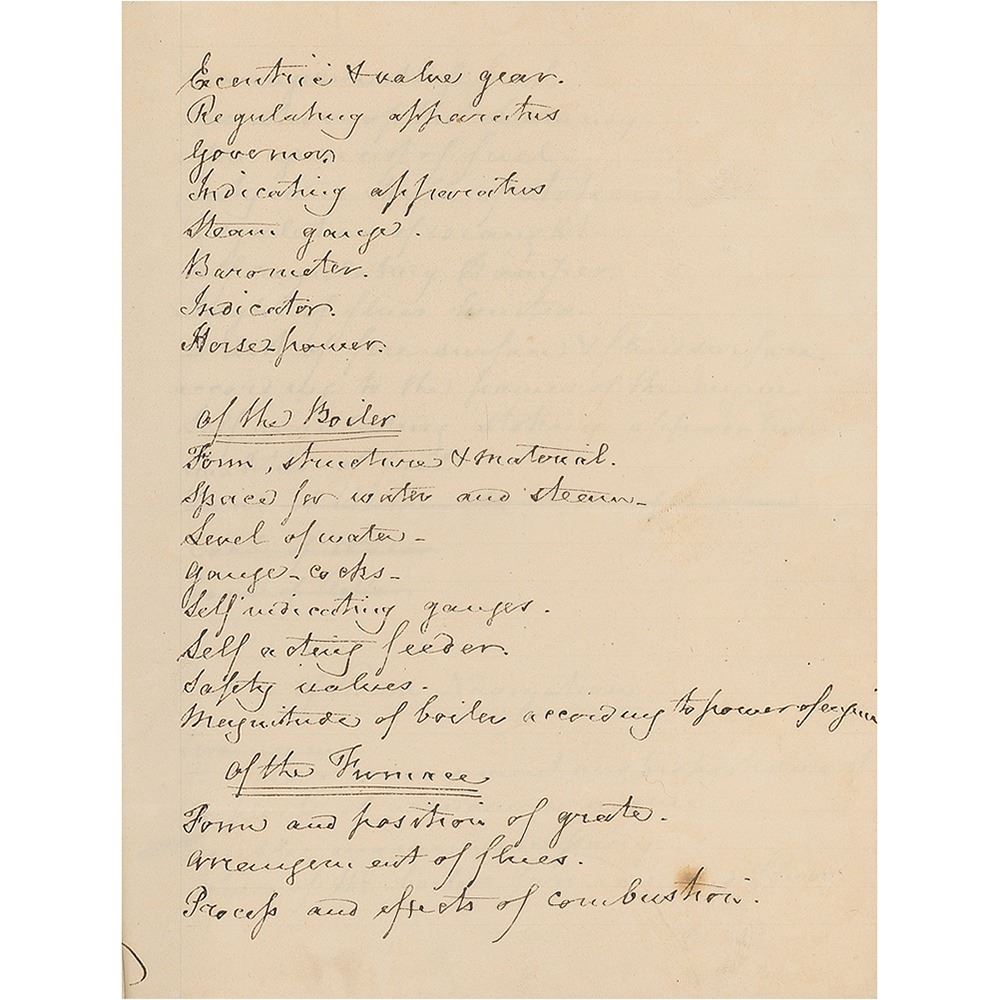 Eccentric & valve gear.
Regulating apparatus
Governor
Indicating apparatus
Steam gauge.
Barometer.
Indicator.
Horse-power.
Of the Boiler
Form, structure & material.
Space for water and steam-
Level of water-
Gauge-cocks-
Self indicating gauges.
Self acting feeder.
Safety valves.
Magnitude of boiler according to power of engin
Of the Furnace
Form and position of grate.
Arrangement of flues.
Process and effects of combustion.